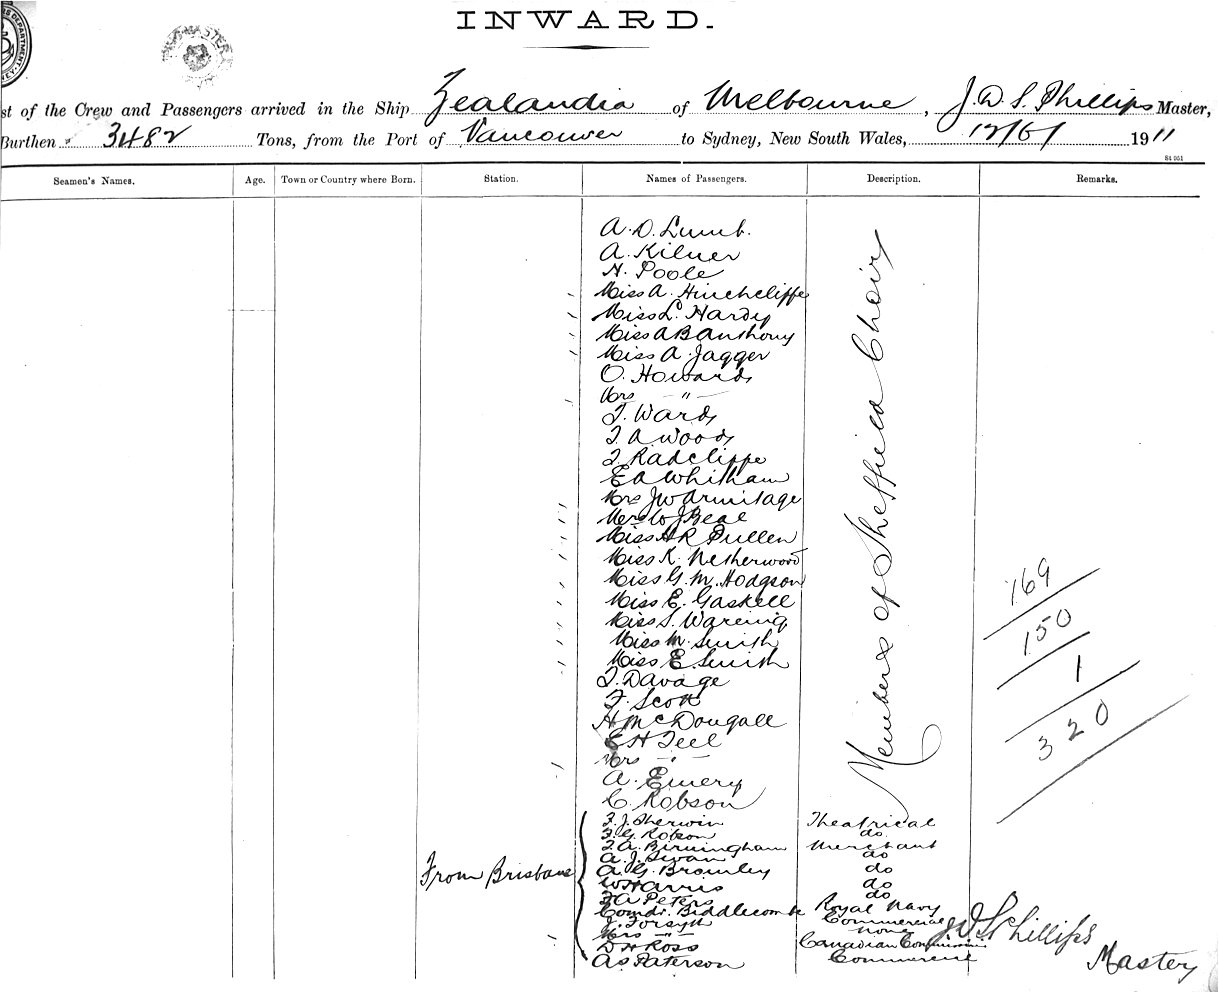 INWARD.
st of the Crew and Passengers arrived in the Ship Zealandia of Melbourne, J. D. S. Phillips Master,
Burthen 3482 Tons, from the Port of Vancouver to Sydney, New South Wales, 12/6/ 1911
St 951
Seamen's Names. Age. Town or Country where Born. Station. Names of Passengers. Description. Remarks.
A. D. Lumb.
A. Kilner
H. Poole
Miss A. Hinchcliffe
Miss L. Hardy
Miss A B Anthony
Miss A. Jagger
O. Howards
Mrs — " —
T. Wards
T. A Woods
T. Radcliffe
E A Whitham
Mrs J W Armitage
Mrs W J Beal
Miss H R Pullen
Miss K. Netherwood
Miss G. M. Hodgson
Miss E. Gaskell
Miss S. Wareing
Miss M. Smith
Miss E Smith
T. Davage
F. Scott
H McDougall
E H Teel
Mrs - " -
A. Emery
C. Robson
Members of Sheffield Choir
169
150
1
320
From Brisbane
F. J. Sherwin Theatrical
F. G. Robson do
T. A. Birmingham Merchant
A. J. Swan do
A. G. Bromley do
W Harris do
F A Peters do
Comdr. Biddlecombe Royal Navy
J. Forsyth Commercial
Mrs — " — none
D H Ross Canadian Commissioner
A S Paterson Commercial
J D S Phillips
Master